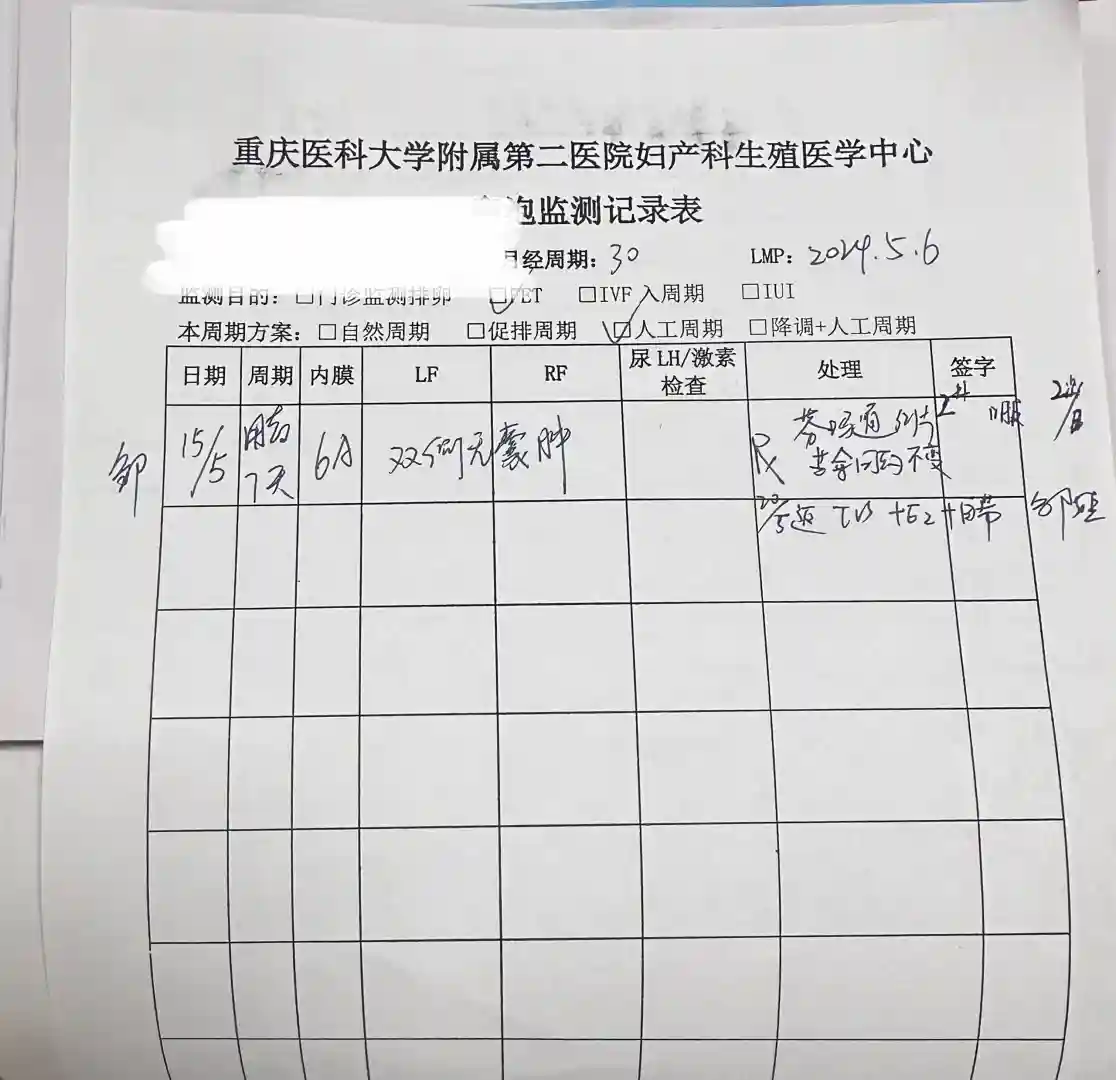 重庆医科大学附属第二医院妇产科生殖医学中心
泡监测记录表
月经周期：30 LMP：2024.5.6
监测目的：□门诊监测排卵 □FET □IVF 入周期 □IUI
本周期方案：□自然周期 □促排周期 □人工周期 □降调+人工周期
日期 周期 内膜 LF RF 尿LH/激素检查 处理 签字
邹 15/5 用药7天 6A 双侧无囊肿 Rx 芬吗通 口服
不变
20/5返 TVS +E2+白带 邹